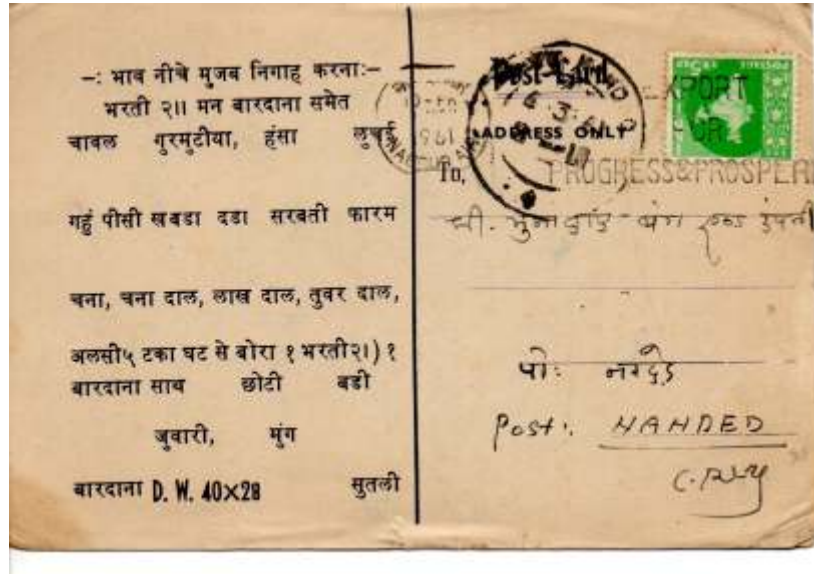 -: भाव नीचे मुजब निगाह करना:-
भरती २॥ मन बारदाना समेत
चावल गुरमुटीया, हंसा लुचई
गहुं पीसी खबडा दडा सरबती फारम
चना, चना दाल, लाख दाल, तुवर दाल,
अलसी५ टका घट से बोरा १ भरती२।) १
बारदाना साथ छोटी बडी
जुवारी, मुंग
बारदाना D. W. 40×28 सुतली
Post Card
ADDRESS ONLY
To,
EXPORT
FOR
PROGRESS&PROSPERI
पो: नांदेड
Post: NANDED
C. Rly